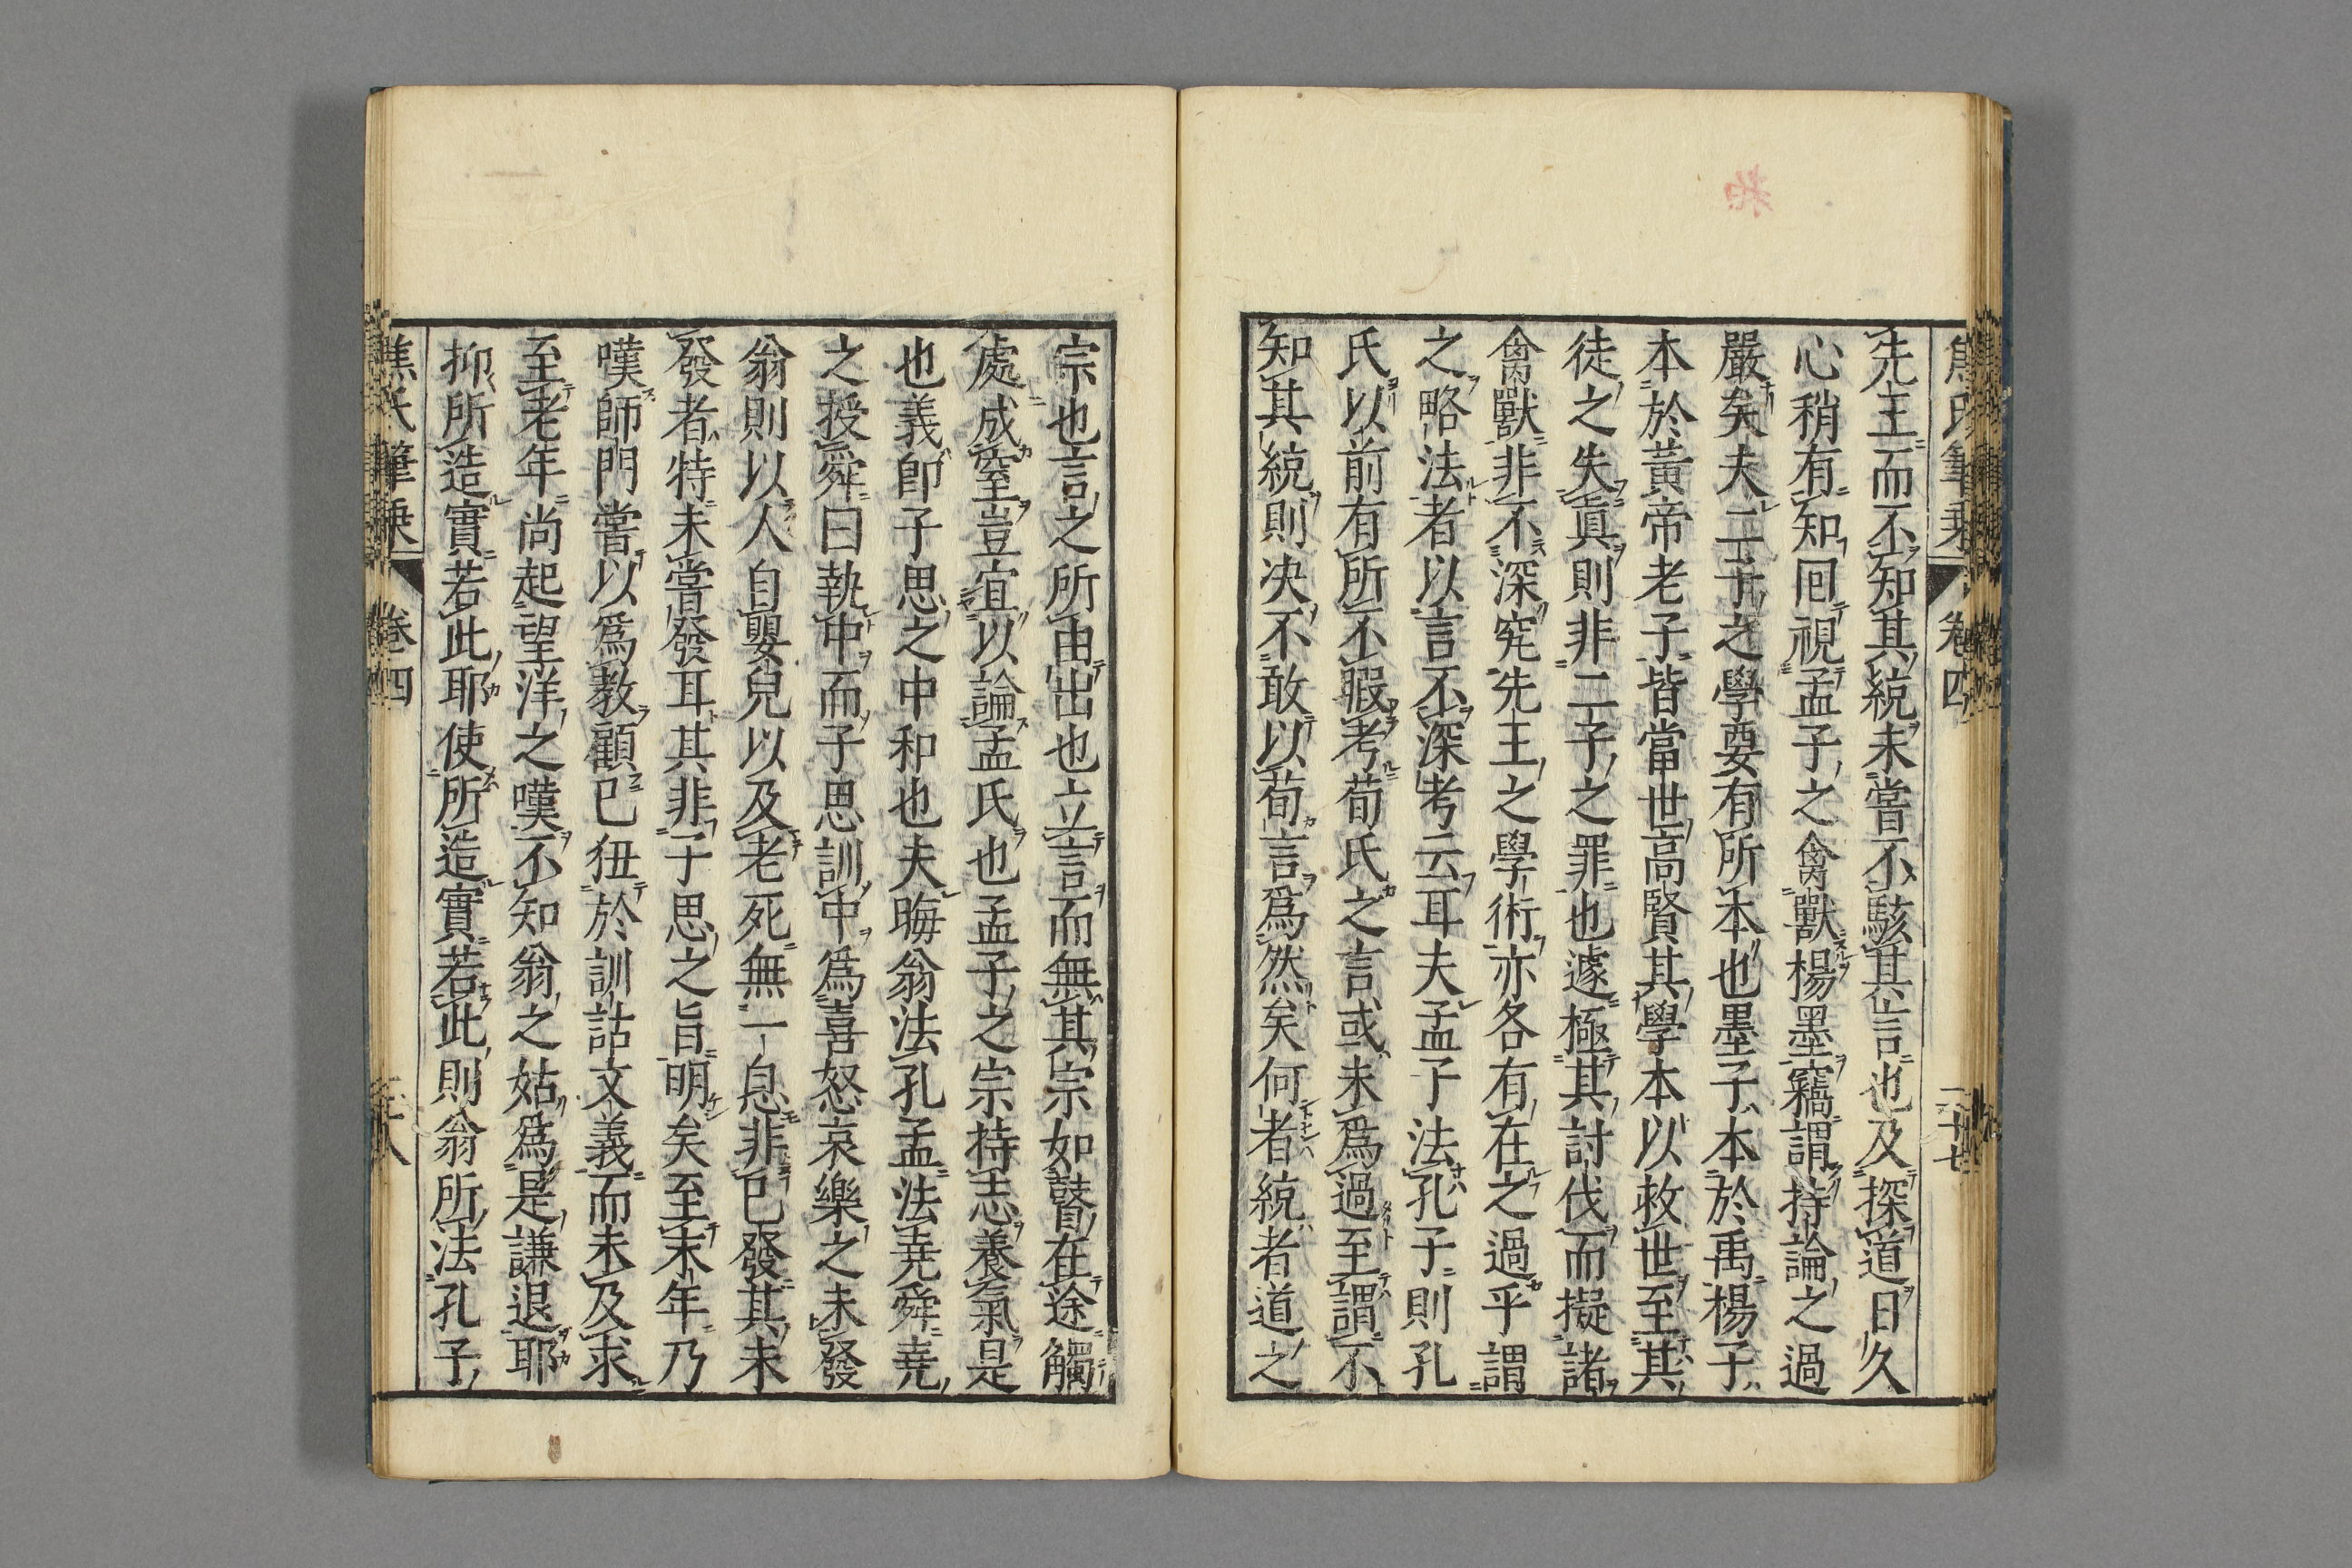 焦氏筆乗 卷四 二十七
先王而不知其統未嘗不駭其言也及探道日久
心稍有知囘視孟子之禽獸楊墨竊謂持論之過
嚴矣夫二子之學要有所本也墨子本於禹楊子
本於黃帝老子皆當世高賢其學本以救世至其
徒之失眞則非二子之罪也遽極其討伐而擬諸
禽獸非不深究先王之學術亦各有在之過乎謂
之略法者以言不深考云耳夫孟子法孔子則孔
氏以前有所不暇考荀氏之言或未爲過至謂不
知其統則决不敢以荀言爲然矣何者統者道之
宗也言之所由出也立言而無其宗如瞽在途觸
處成窒豈宜以論孟氏也孟子之宗持志養氣是
也義卽子思之中和也夫晦翁法孔孟法堯舜堯
之授舜曰執中而子思訓中爲喜怒哀樂之未發
翁則以人自嬰兒以及老死無一息非已發其未
發者特未嘗發耳其非子思之旨明矣至末年乃
嘆師門嘗以爲教顧已狃於訓詁文義而未及求
至老年尚起望洋之嘆不知翁之姑爲是謙退耶
抑所造實若此耶使所造實若此則翁所法孔子
焦氏筆乗 卷四 二十八